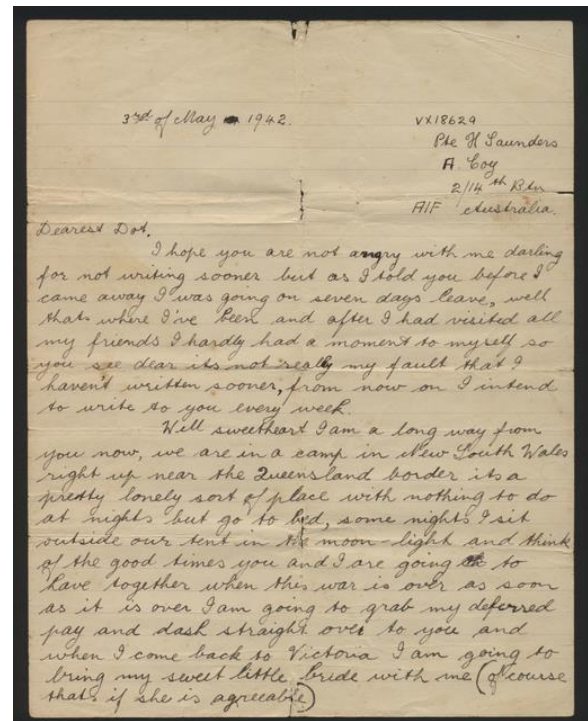 3rd of May 1942.
VX18629
Pte H Saunders
A. Coy
2/14th Btn
AIF Australia.
Dearest Dot,
I hope you are not angry with me darling
for not writing sooner but as I told you before I
came away I was going on seven days leave, well
thats where I've been and after I had visited all
my friends I hardly had a moment to myself so
you see dear its not really my fault that I
haven't written sooner, from now on I intend
to write to you every week.
Well sweetheart I am a long way from
you now, we are in a camp in New South Wales
right up near the Queensland border its a
pretty lonely sort of place with nothing to do
at nights but go to bed, some nights I sit
outside our tent in the moon-light and think
of the good times you and I are going to
have together when this war is over as soon
as it is over I am going to grab my deferred
pay and dash straight over to you and
when I come back to Victoria I am going to
bring my sweet little bride with me (of course
thats if she is agreeable)